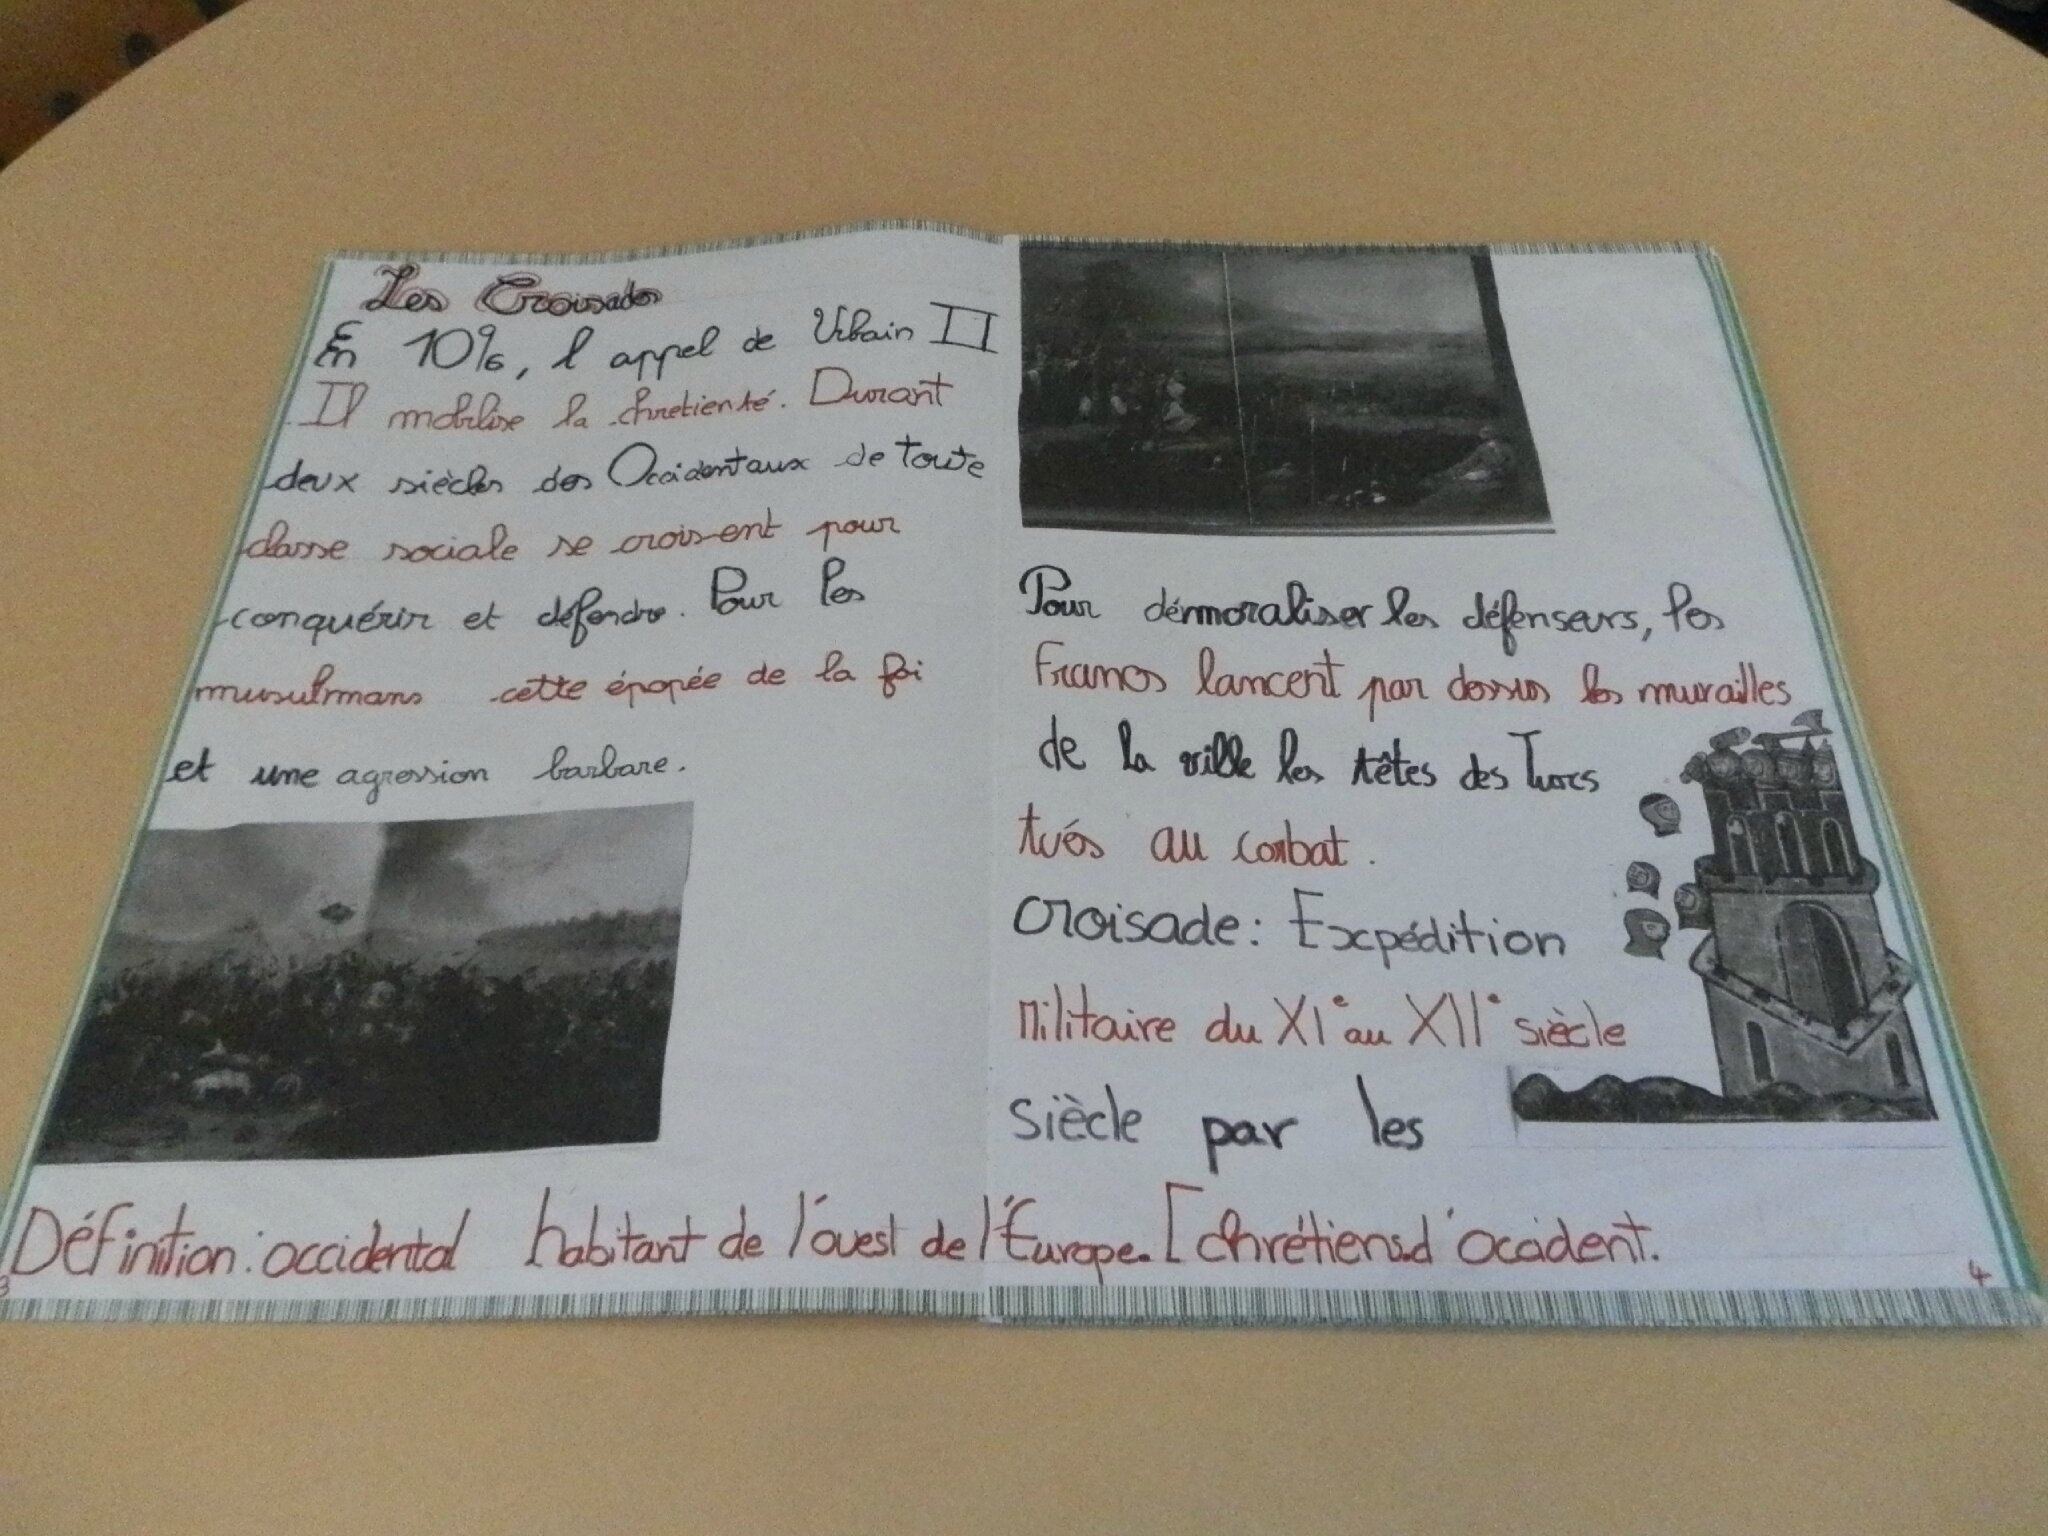 Les Croisades
En 1096, l appel de Urbain II
Il mobilise la chretienté. Durant
deux siècles des Occidentaux de toute
classe sociale se croisent pour
conquérir et défendre. Pour les
musulmans cette épopée de la foi
et une agression barbare.
Définition : occidental habitant de l'ouest de l'Europe.
3
Pour démoraliser les défenseurs, les
Francs lancent par dessus les murailles
de la ville les têtes des Turcs
tués au combat.
Croisade : Expédition
Militaire du XIe au XIIe siècle
siècle par les
[chrétiens d'occident.
4